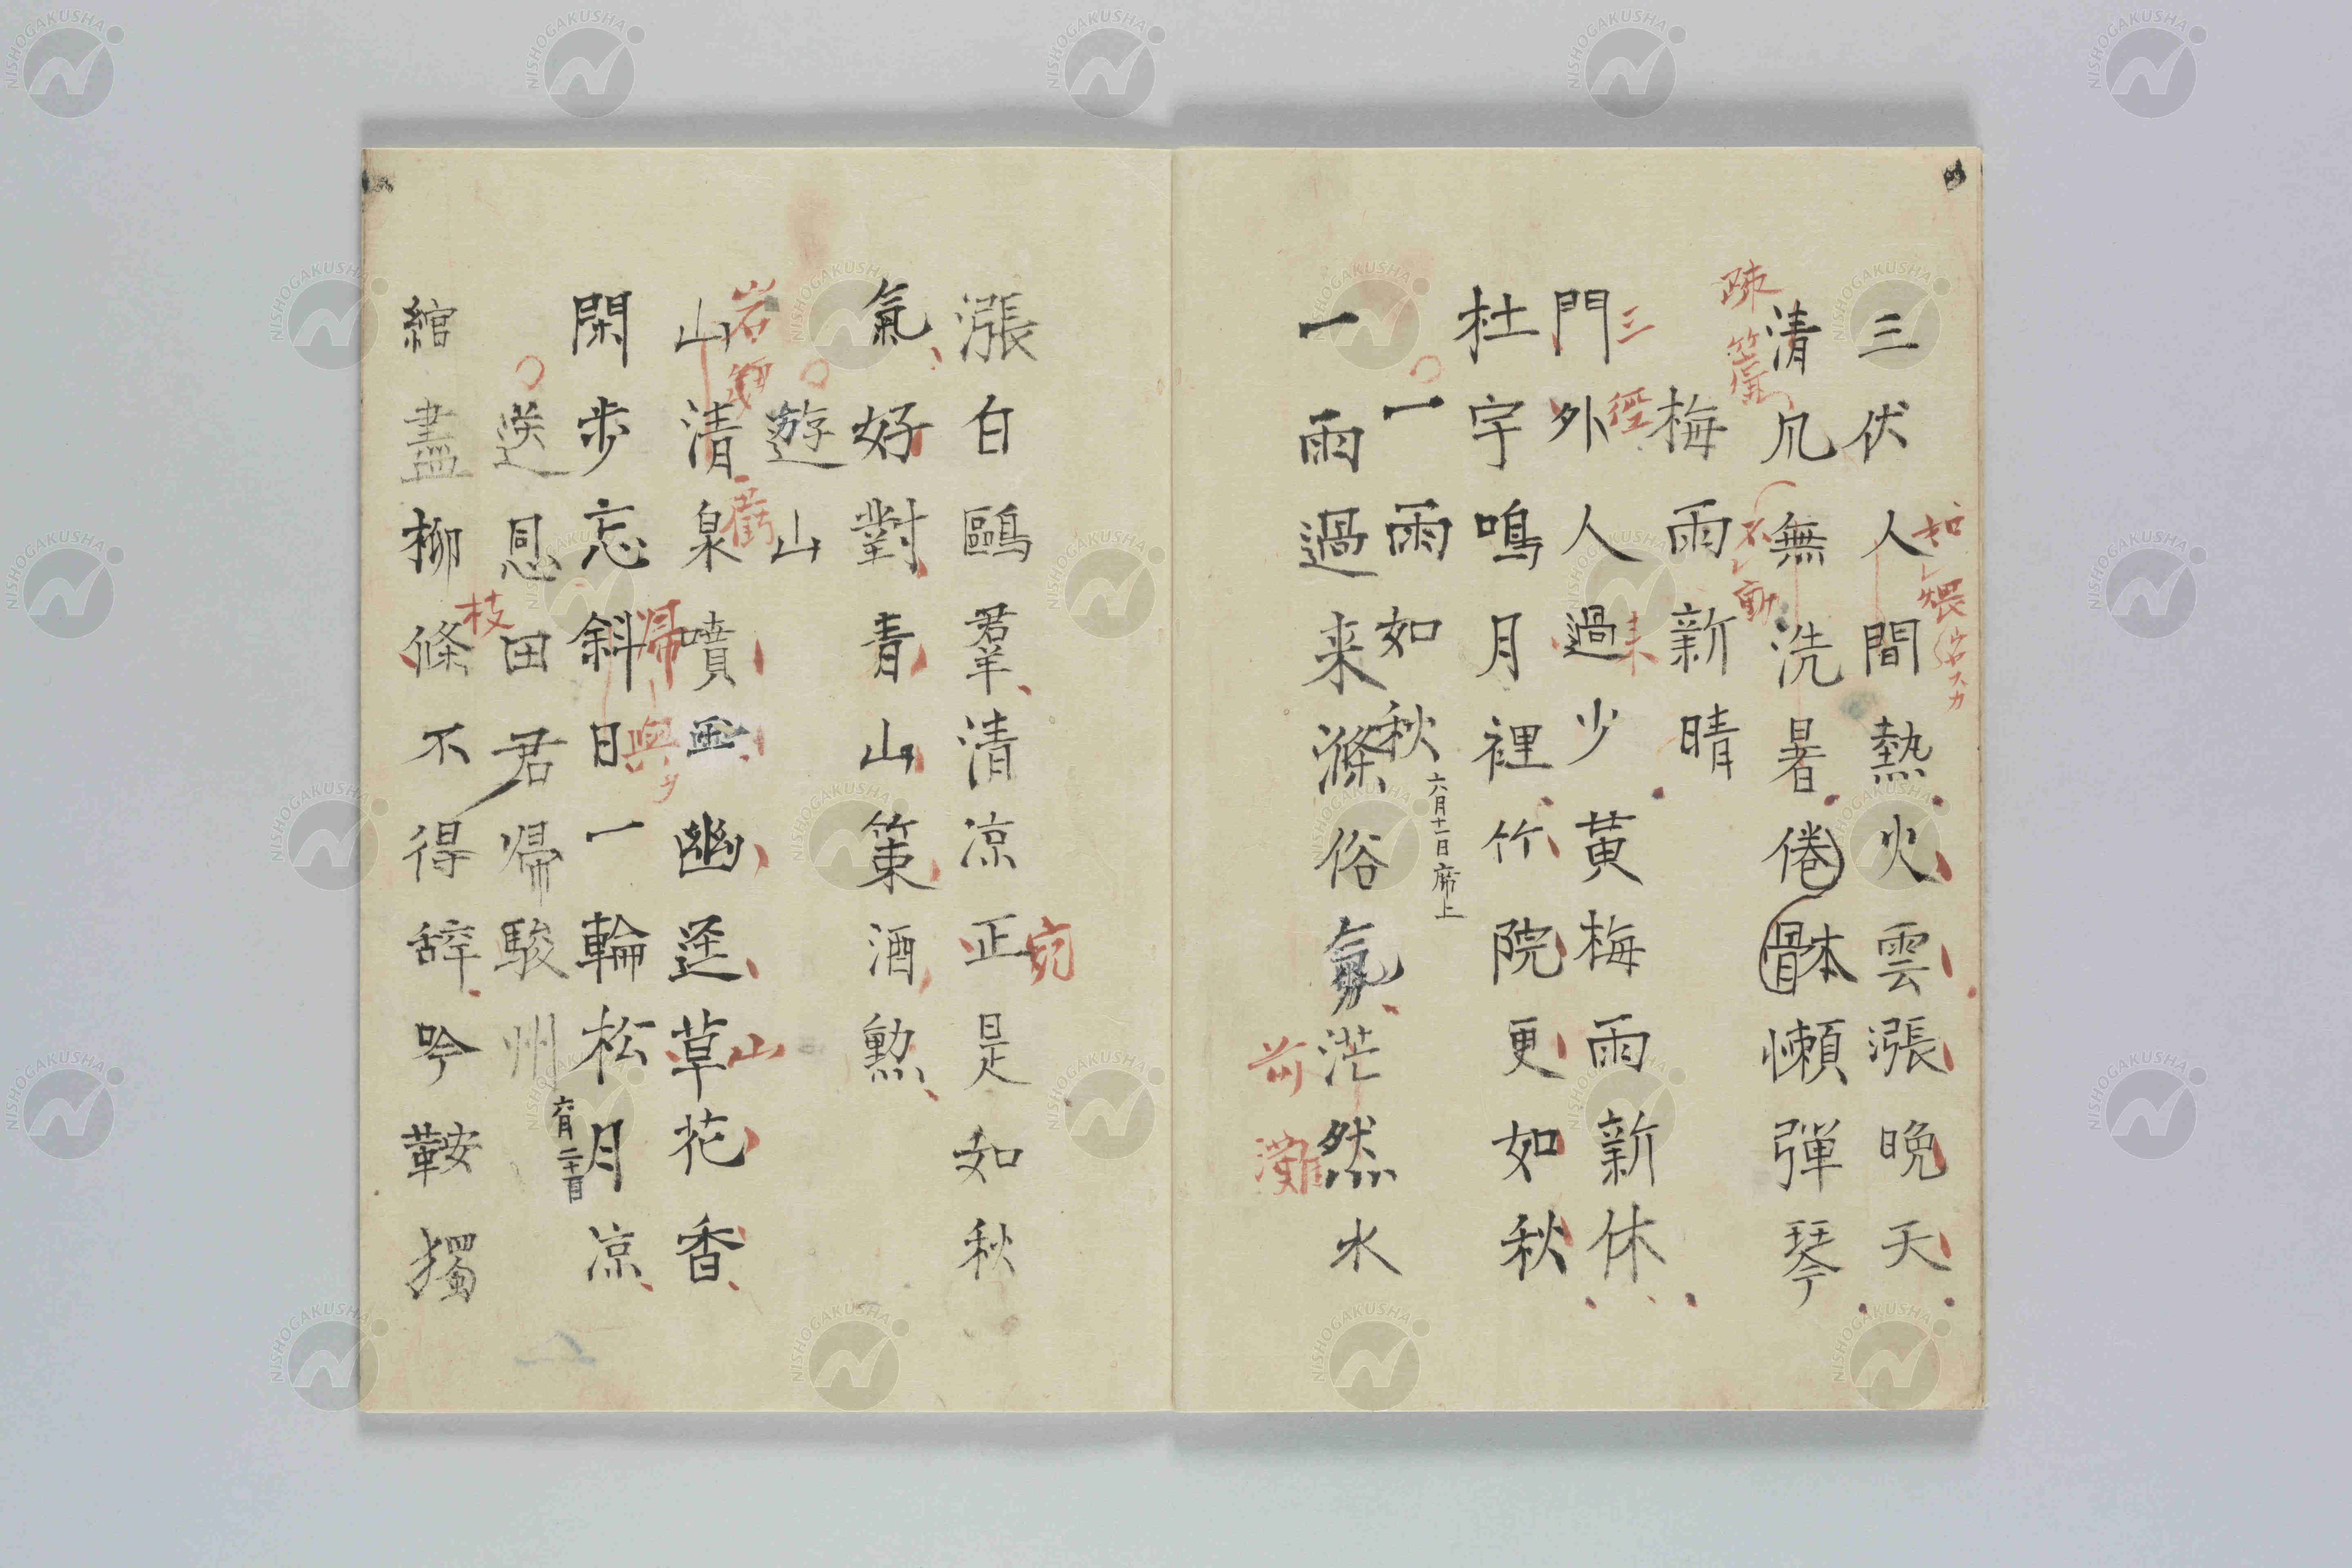 三伏人間熱火雲漲晚天
如㆑煨
清几無洗暑倦骵懶彈琴
疎
不㆑動
梅雨新晴
門外人過少黃梅雨新休
三徑
来
杜宇鳴月裡竹院更如秋
一雨如秋 六月十一日席上
一雨過来滌俗氣茫然水
前灘
漲白鷗羣清凉正是如秋
宛
氣好對青山策酒勲
遊山
山清泉噴
幽逕草花香
岩
山
閑步忘斜日一輪松月凉
帰
興
送恩田君帰駿州 六月二十一日
綰盡柳條不得辞吟鞍獨
枝
NISHOGAKUSHA